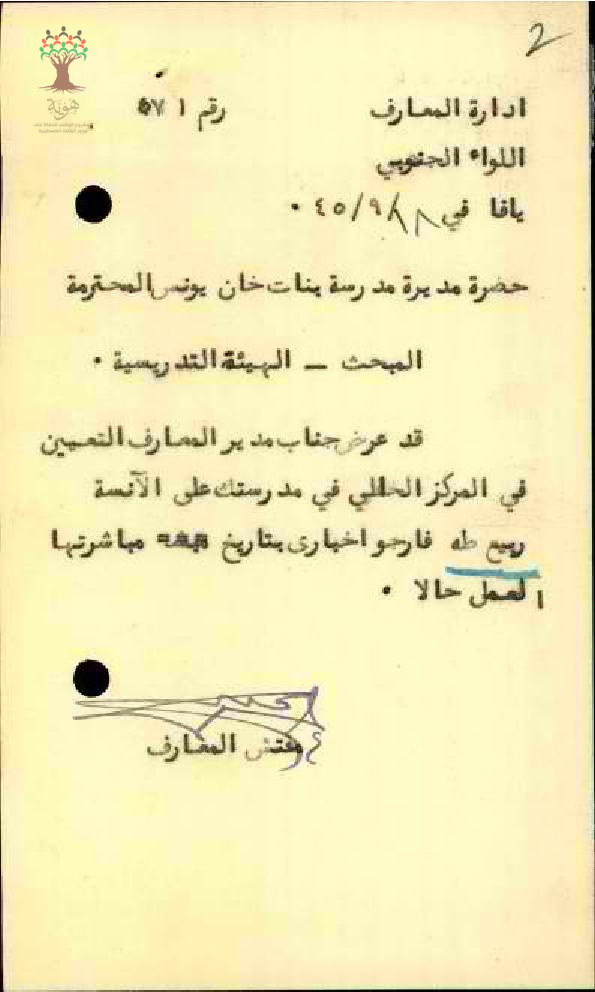 2
هوية
ادارة المعارف رقم ٥٧١
اللواء الجنوبي
يافا في ١٨/٩/٤٥ .
حضرة مديرة مدرسة بنات خان يونس المحترمة
المبحث – الهيئة التدريسية .
قد عرض جناب مدير المعارف التعيين
في المركز الخالي في مدرستك على الآنسة
ربيع طه فارجو اخباري بتاريخ مباشرتها
العمل حالا .
مفتش المعارف